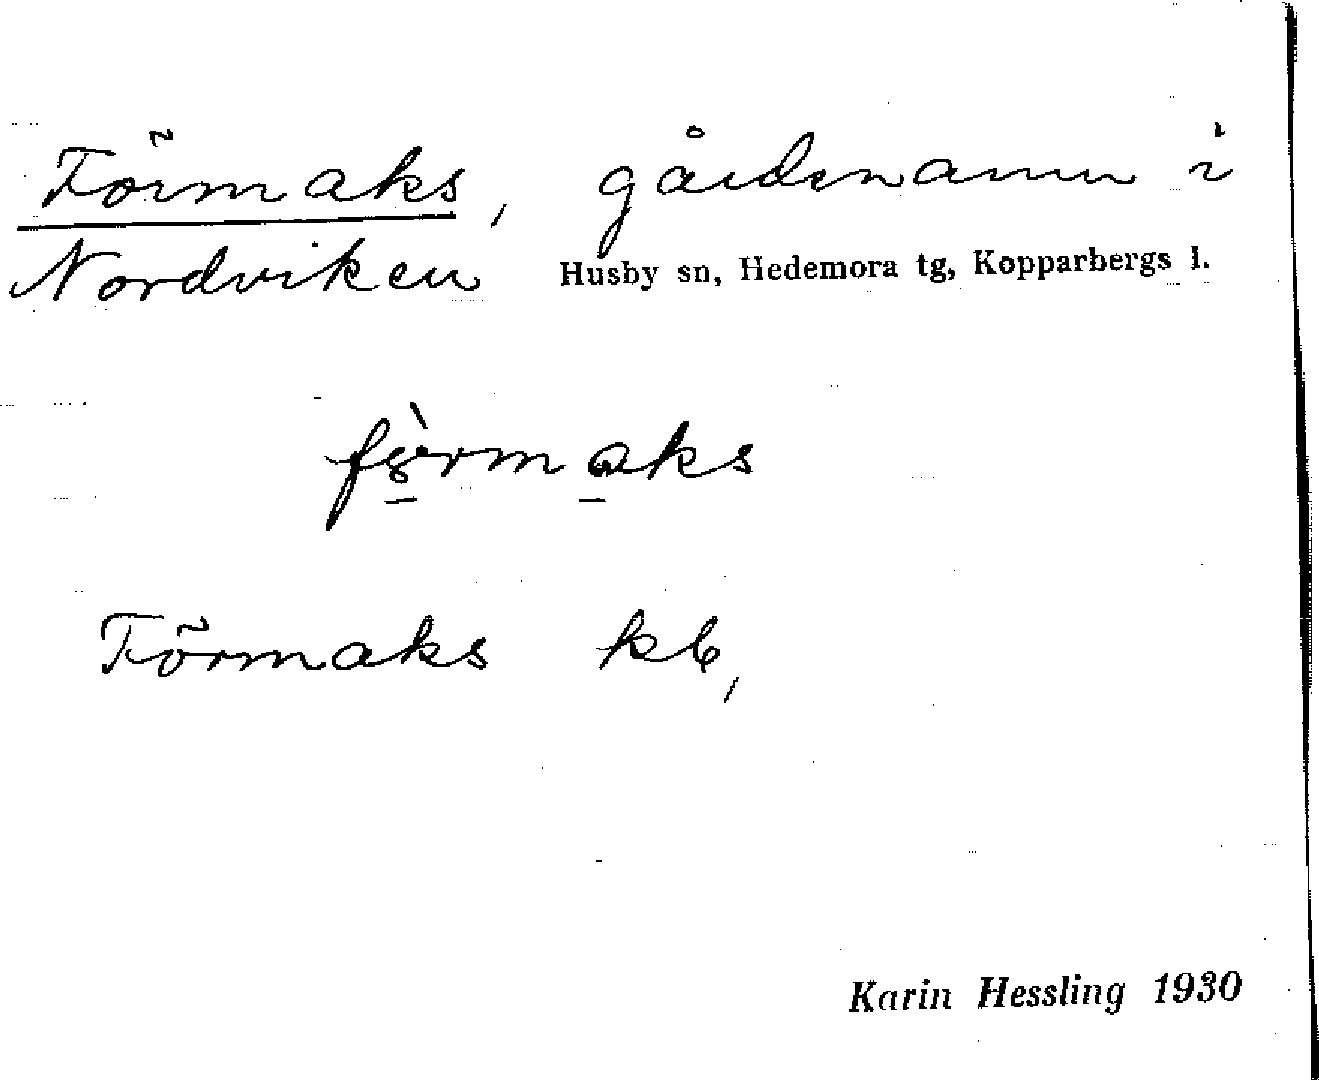 Förmaks, gårdsnamn i
Nordviken Husby sn, Hedemora tg, Kopparbergs l.
fö̀rmaks
Förmaks kb,
Karin Hessling 1930